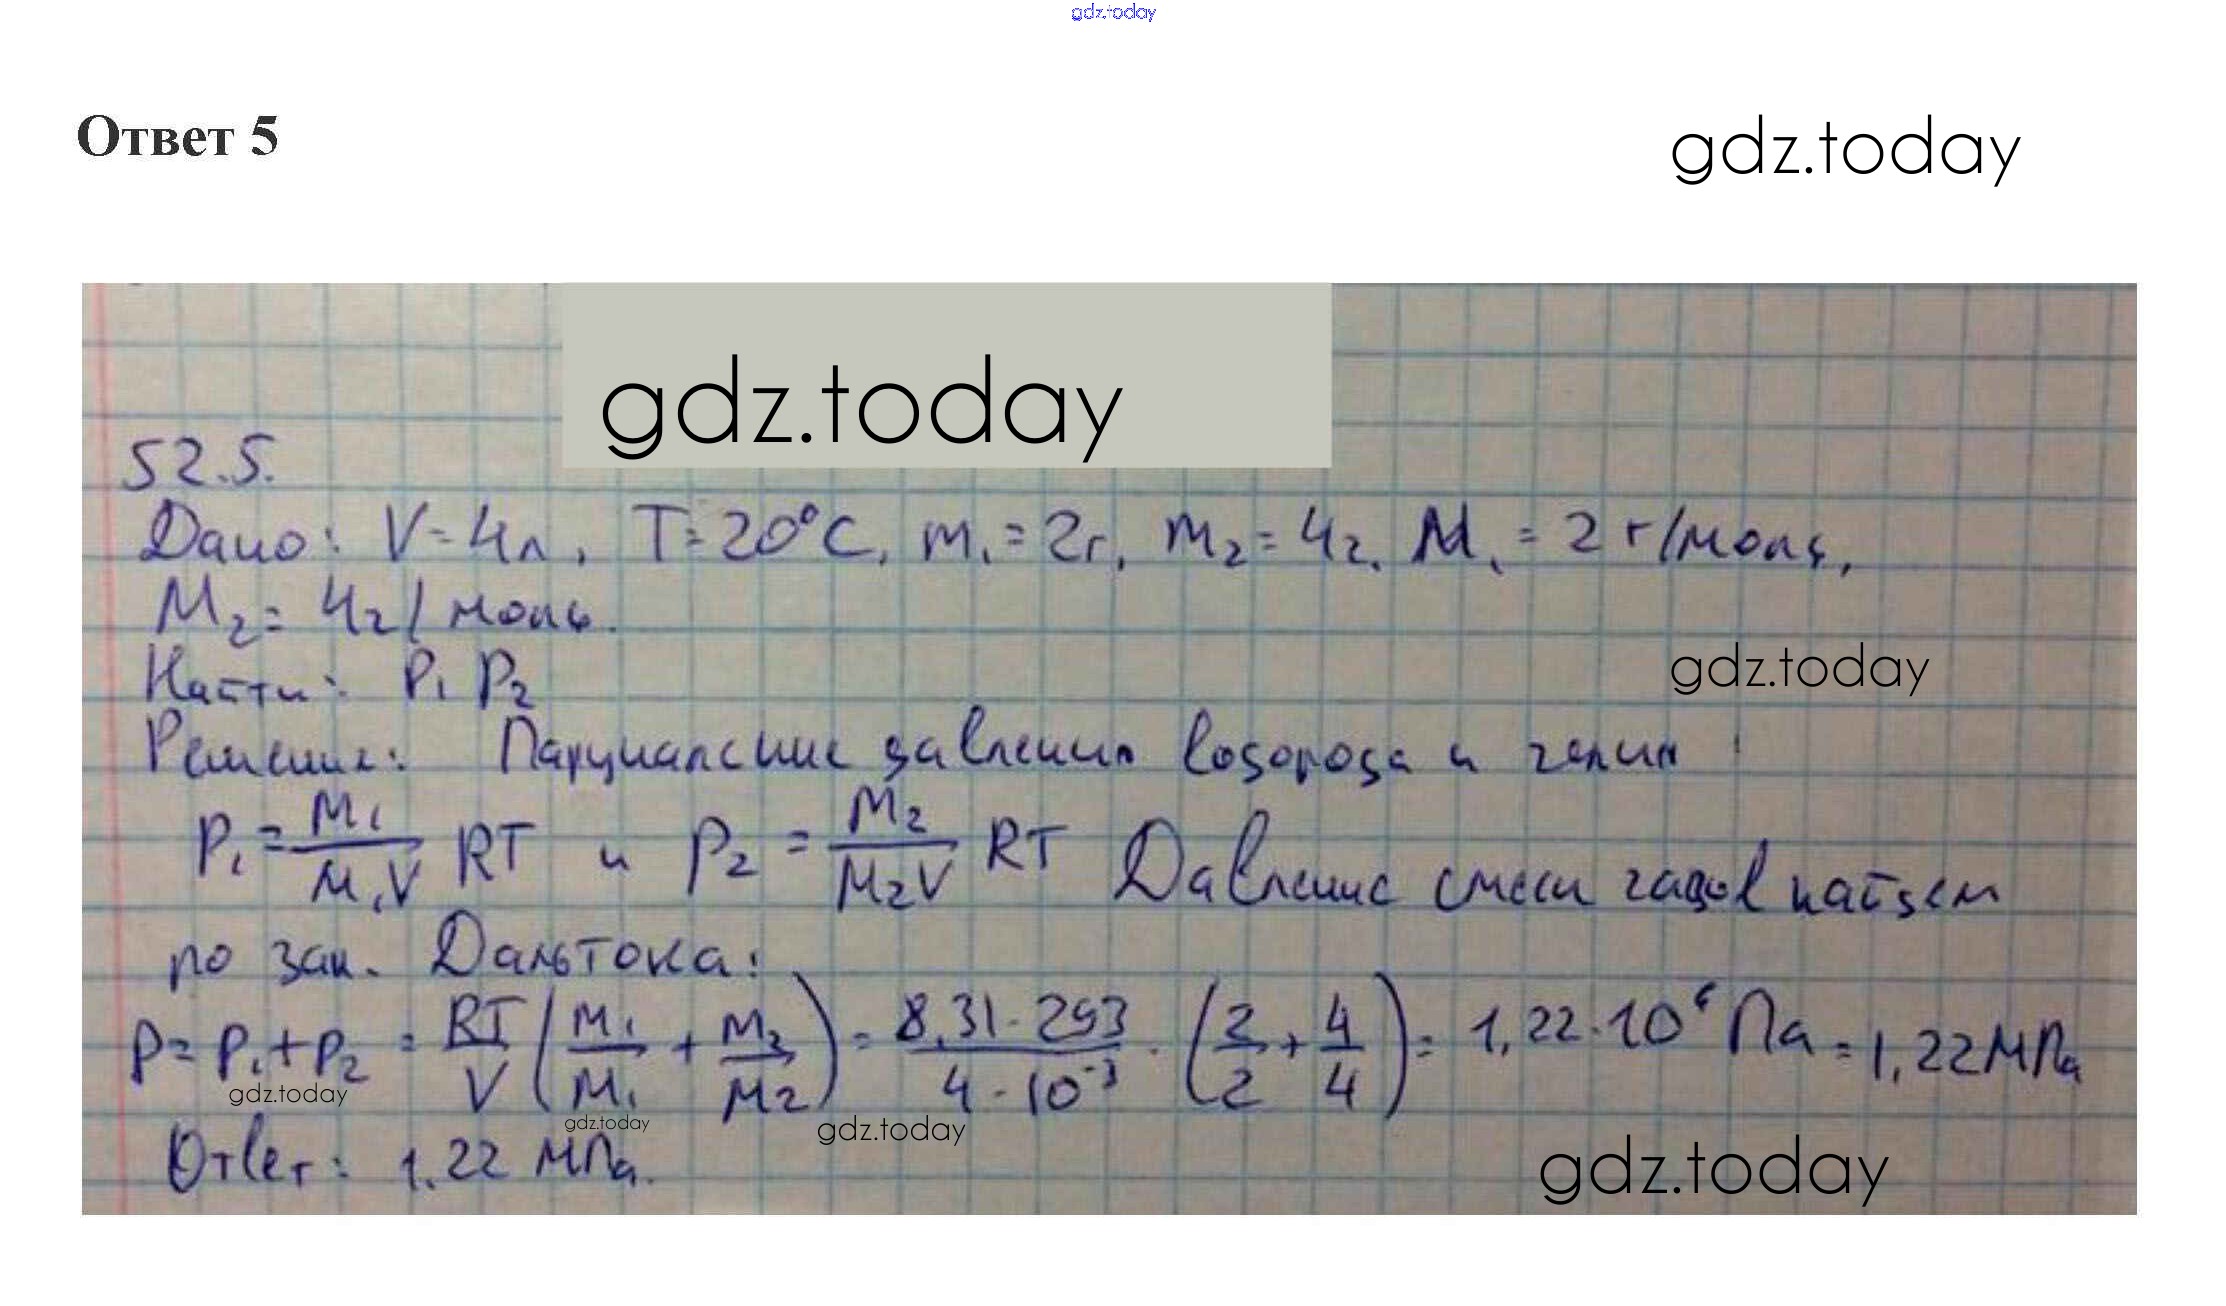 gdz.today
Ответ 5
gdz.today
gdz.today
52.5.
Дано: V = 4л, T = 20°C, m₁ = 2г, m₂ = 4г. M₁ = 2 г/моль,
M₂ = 4г/моль.
gdz.today
Найти: P₁ P₂
Решение: Парциальные давления водорода и гелия:
P₁ = m₁/(M₁V) RT и P₂ = m₂/(M₂V) RT Давление смеси газов найдем
по зак. Дальтона:
P = P₁ + P₂ = RT/V (m₁/M₁ + m₂/M₂) = 8,31 · 293/(4 · 10⁻³) · (2/2 + 4/4) = 1,22 · 10⁶ Па = 1,22 МПа
gdz.today
gdz.today
gdz.today
Ответ: 1,22 МПа.
gdz.today